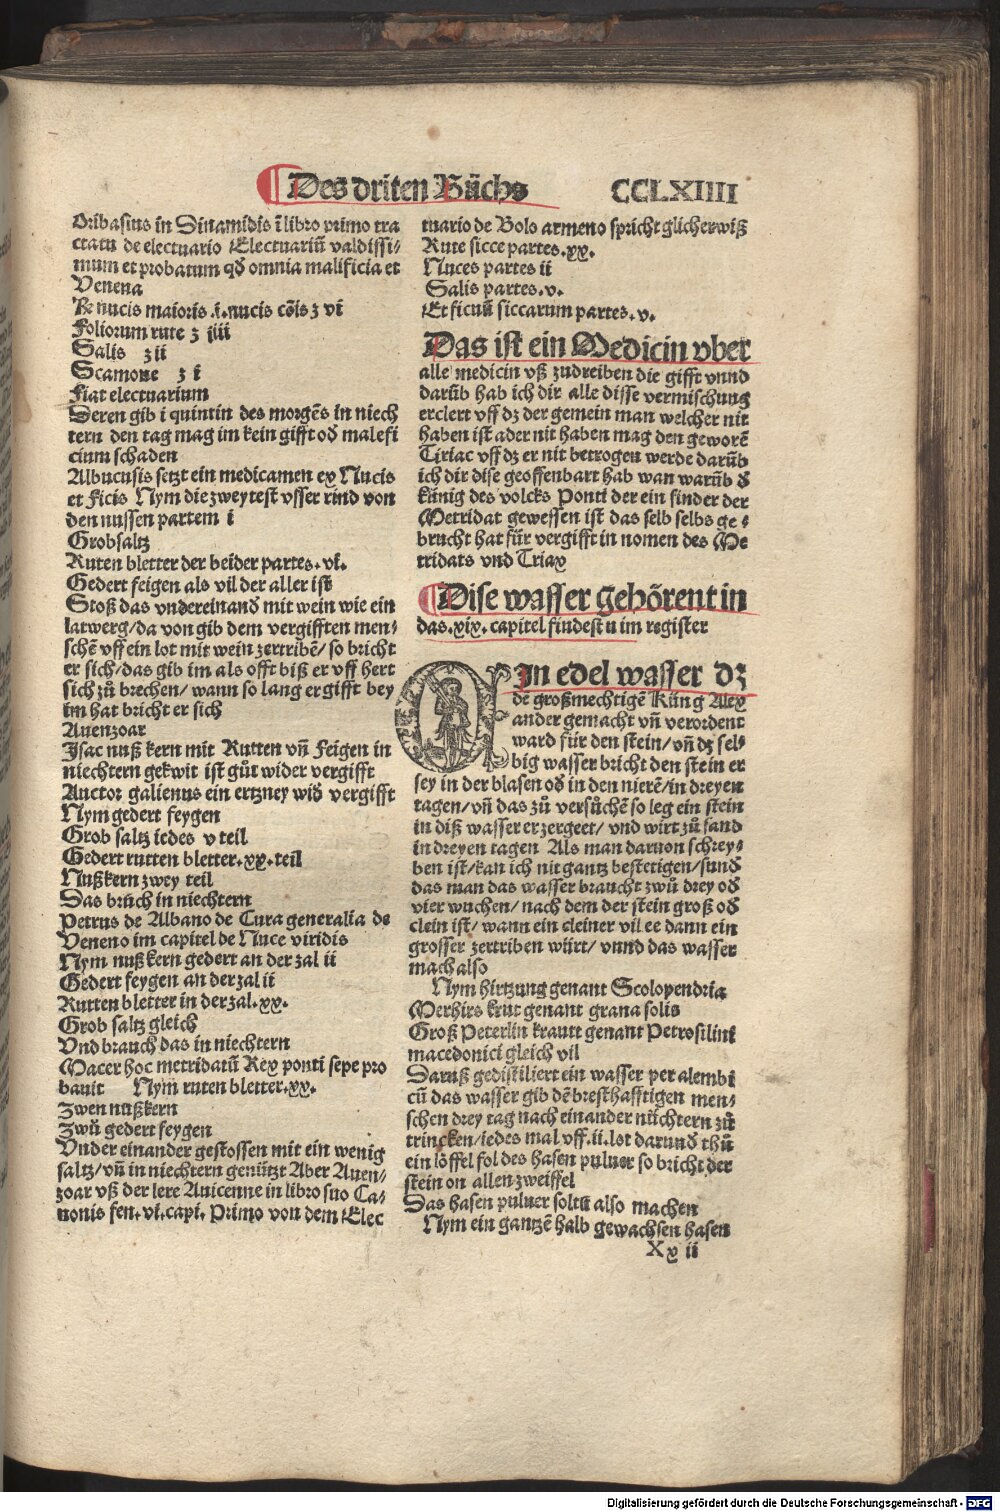 Des driten Bůchs CCLXIIII
Oribasius in Dinamidis ī libro primo tra
ctatu de electuario Electuariū valdissi-
mum et probatum qđ omnia malificia et
Venena
℞ nucis maioris .i. nucis cōis ʒ vi
Foliorum rute ʒ iiii
Salis ʒ ii
Scamone ʒ i
Fiat electuarium
Deren gib i quintin des morgēs in niech
tern den tag mag im kein gifft ođ malefi
cium schaden
Albucusis setzt ein medicamen ex Nucis
et Ficis Nym die zweytest vsser rind von
den nussen partem i
Grobsaltz
Ruten bletter der beider partes.vi.
Gedert feigen als vil der aller ist
Stoß das vndereinand mit wein wie ein
latwerg/da von gib dem vergifften men-
schē vff ein lot mit wein zertribē/so bricht
er sich/das gib im als offt biß er vff hert
sich zů brechen/wann so lang er gifft bey
im hat bricht er sich
Auenzoar
Isac nuß kern mit Rutten vñ Feigen in
niechtern gekwit ist gůt wider vergifft
Auctor galienus ein ertzney wiđ vergifft
Nym gedert feygen
Grob saltz iedes v teil
Gedert rutten bletter.xx.teil
Nußkern zwey teil
Das brůch in niechtern
Petrus de Albano de Cura generalia de
Veneno im capitel de Nuce viridis
Nym nußkern gedert an der zal ii
Gedert feygen an der zal ii
Rutten bletter in der zal.xx.
Grob saltz gleich
Vnd brauch das in niechtern
Macer hoc metridatū Rex ponti sepe pro
bauit Nym ruten bletter.xx.
Zwen nußkern
Zwů gedert feygen
Vnder einander gestossen mit ein wenig
saltz/vñ in niechtern genützt Aber Auen-
zoar vß der lere Auicenne in libro suo Ca-
nonis fen.vi.capi. Primo von dem Elec
tuario de Bolo armeno spricht glicherwiß
Rute sicce partes.xx.
Nuces partes ii
Salis partes.v.
Et ficuū siccarum partes.v.
Das ist ein Medicin vber
alle medicin vß zudreiben die gifft vnnd
darūb hab ich dir alle disse vermischung
erclert vff dz der gemein man welcher nit
haben ist ader nit haben mag den geworē
Tiriac vff dz er nit betrogen werde darūb
ich dir dise geoffenbart hab wan warūb đ
künig des volcks Ponti der ein finder der
Metridat gewessen ist das selb selbs ge-
brucht hat für vergifft in nomen des Me
tridats vnd Triax
Dise wasser gehörent in
das.xix.capitel findest u im register
In edel wasser dz
de großmechtigē Küng Alex
ander gemacht vñ verordent
ward für den stein/vñ dz sel-
big wasser bricht den stein er
sey in der blasen ođ in den nierē/in dreyen
tagen/vñ das zů versůchē so leg ein stein
in diß wasser er zergeet/vnd wirt zů sand
in dreyen tagen Als man daruon schrey-
ben ist/kan ich nit gantz bestetigen/sunđ
das man das wasser braucht zwů drey ođ
vier wuchen/nach dem der stein groß ođ
clein ist/wann ein cleiner vil ee dann ein
grosser zertriben würt/vnnd das wasser
mach also
Nym hirtzung genant Scolopendria
Merhirs krut genant grana solis
Groß Peterlin krautt genant Petrosilini
macedonici gleich vil
Daruß gedistiliert ein wasser per alembi
cū das wasser gib dē bresthafftigen men-
schen drey tag nach einander nüchtern zů
trincken/iedes mal vff.ii.lot darunđ thů
ein löffel fol des hasen puluer so bricht der
stein on allen zweiffel
Das hasen puluer soltu also machen
Nym ein gantzē halb gewachsen hasen
Xx ii
Digitalisierung gefördert durch die Deutsche Forschungsgemeinschaft - DFG